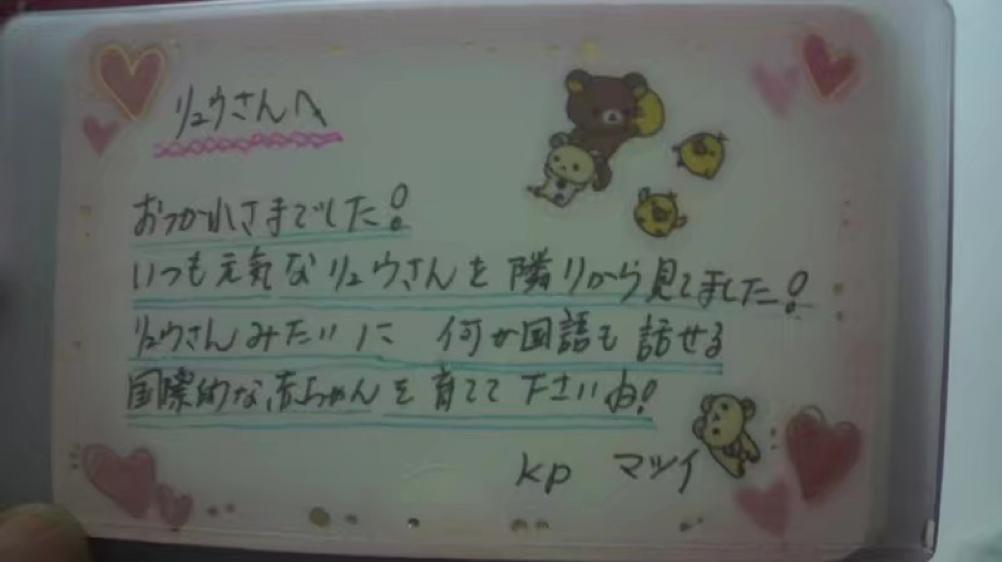 リュウさんへ
おつかれさまでした!
いつも元気なリュウさんを隣りから見てました!
リュウさんみたいに 何か国語も話せる
国際的な赤ちゃんを育てて下さいね!
kp マツイ